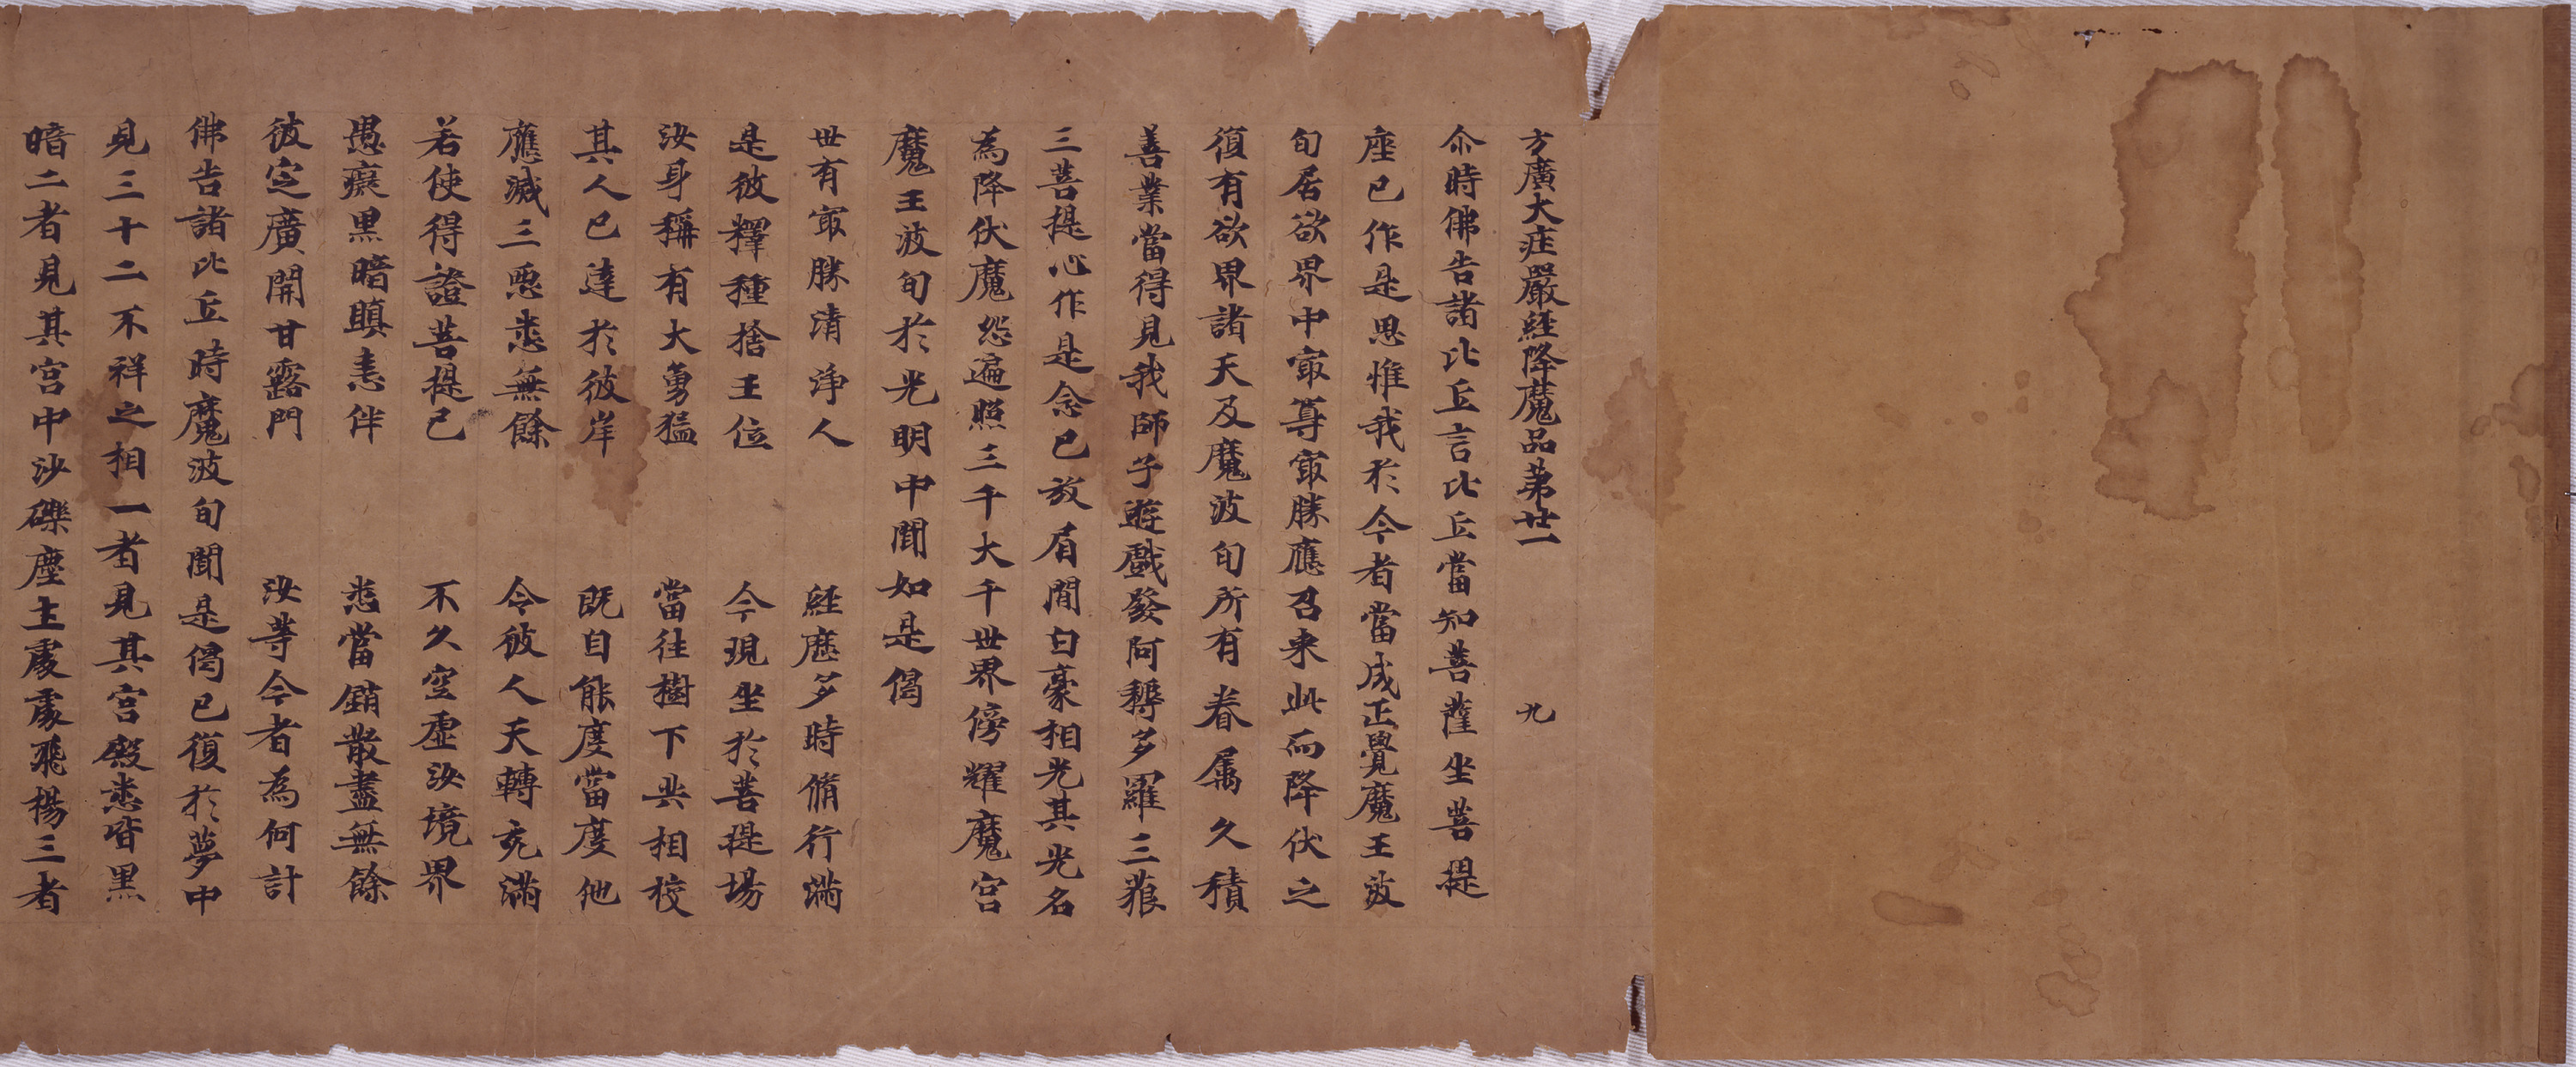 方廣大疰嚴經降魔品苐廿一　九
尒時佛告諸比丘言比丘當知菩薩坐菩提
座已作是思惟我於今者當成正覺魔王波
旬居欲界中㝡尊㝡勝應召来此而降伏之
復有欲界諸天及魔波旬所有眷属久積
善業當得見我師子遊戲發阿耨多羅三藐
三菩提心作是念已放眉間白豪相光其光名
為降伏魔怨遍照三千大千世界傍耀魔宫
魔王波旬於光明中聞如是偈
世有㝡勝清淨人　經歴多時脩行滿
是彼釋種捨王位　今現坐於菩提場
汝身稱有大勇猛　當往樹下共相校
其人已達於彼岸　既自能度當度他
應滅三惡悉無餘　令彼人天轉充滿
若使得證菩提已　不久空虚汝境界
愚癡黒暗瞋恚伴　悉當銷散盡無餘
彼定廣開甘露門　汝等今者為何計
佛告諸比丘時魔波旬聞是偈已復於夢中
見三十二不祥之相一者見其宫殿悉皆黒
暗二者見其宫中沙礫塵土處處飛楊三者